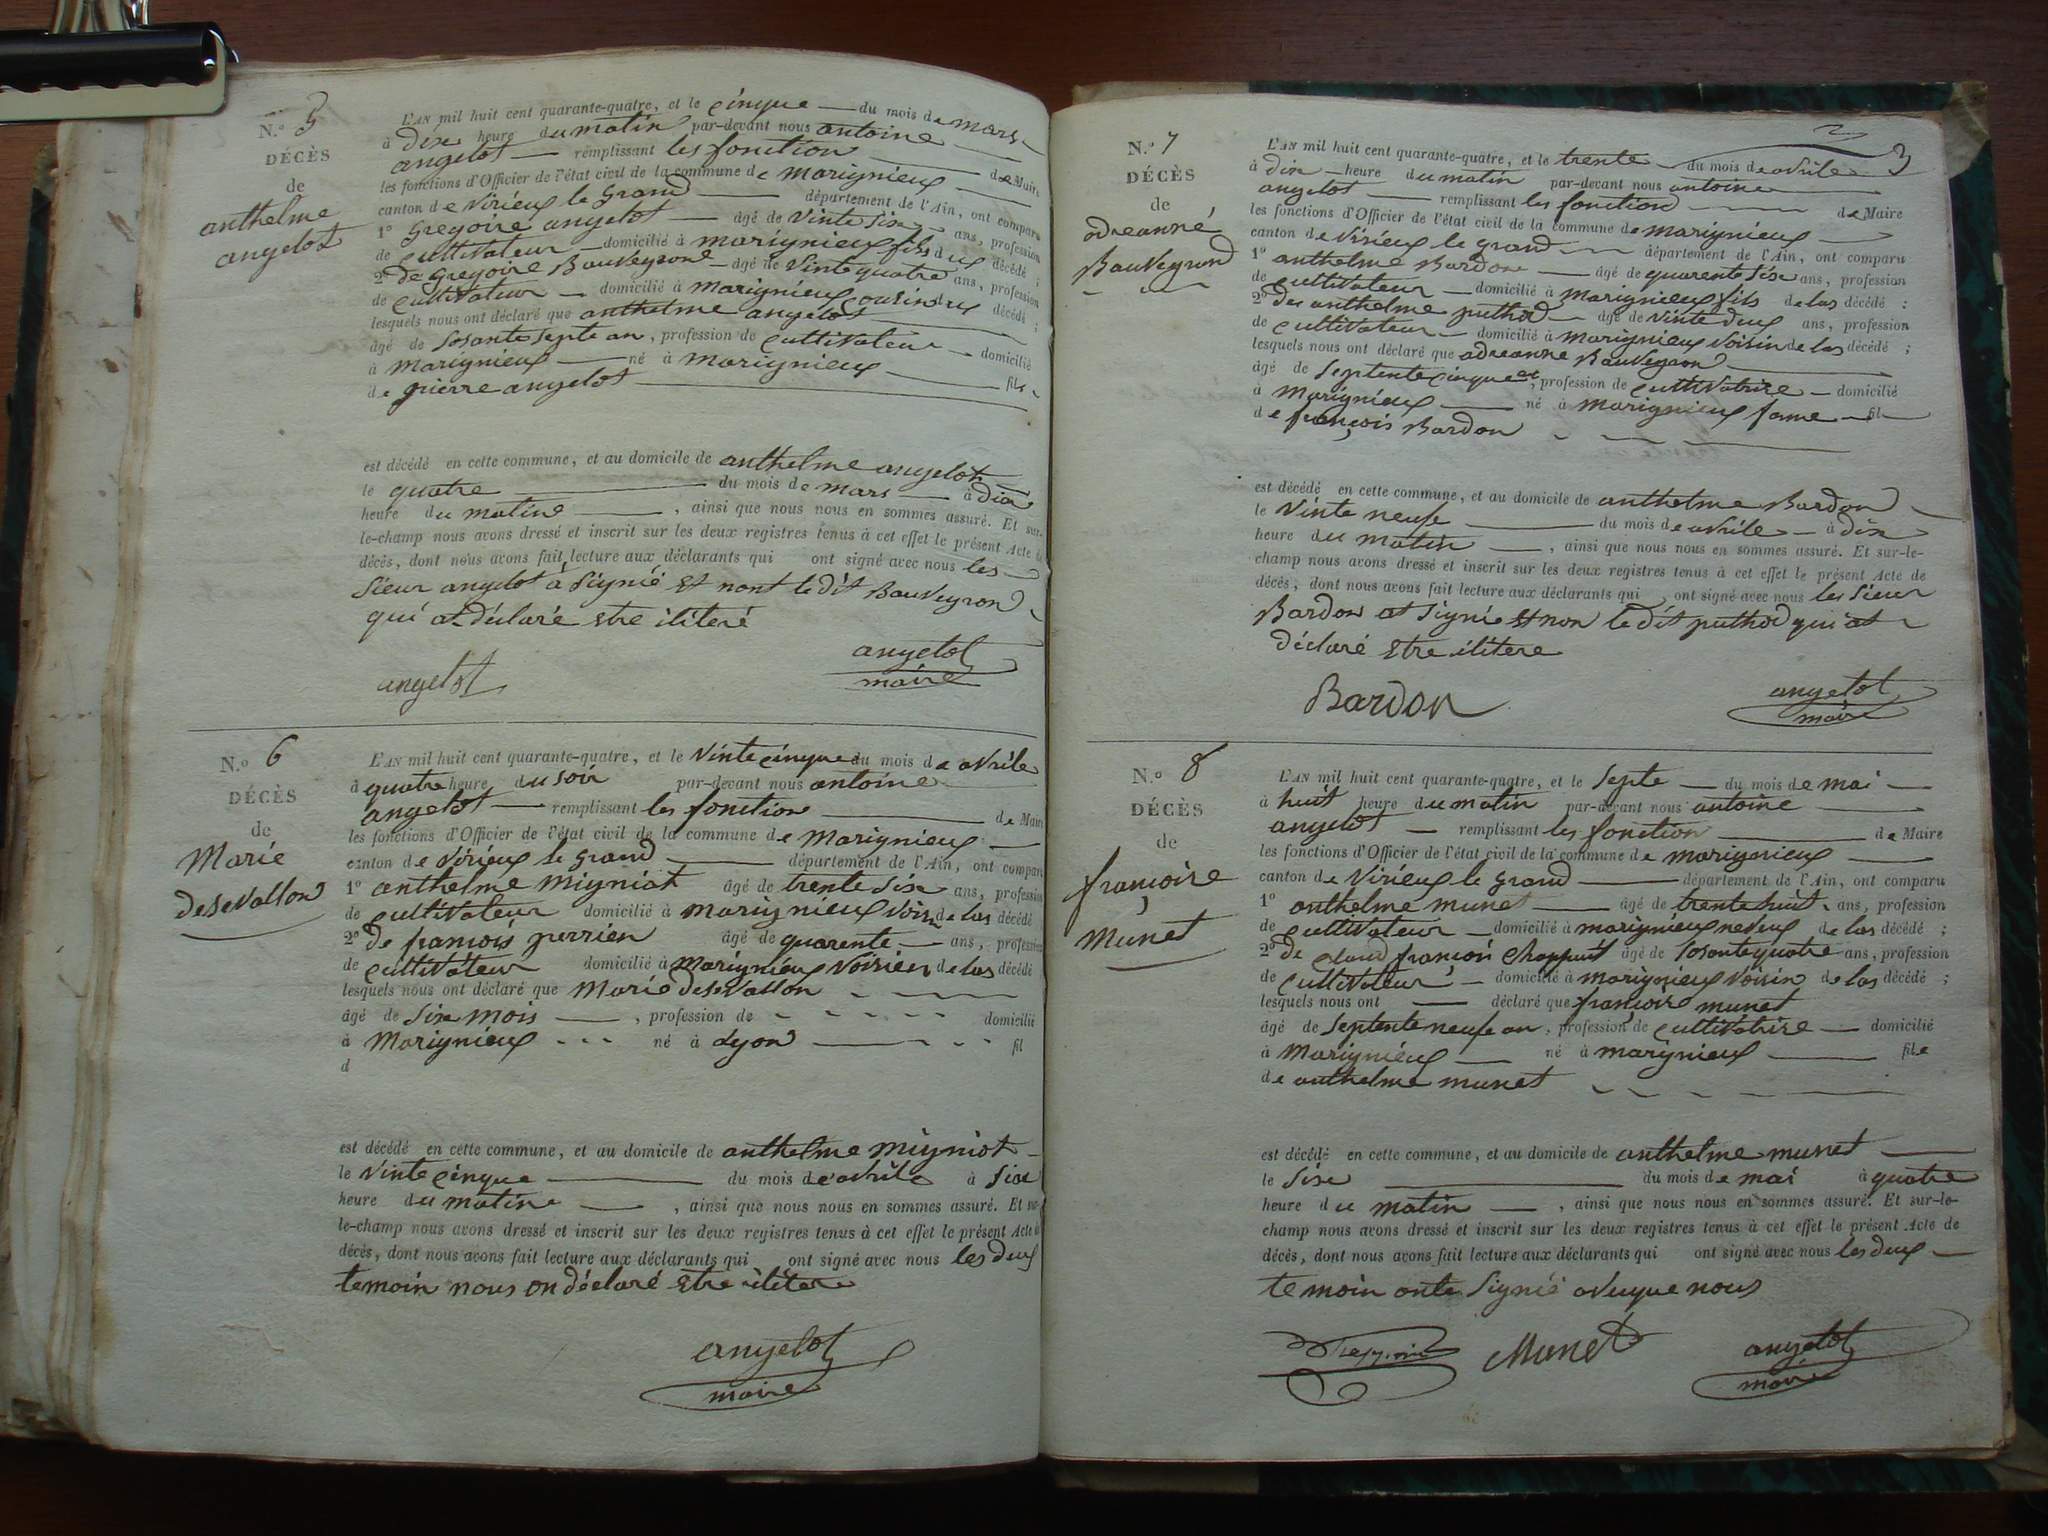 N.o 5
DÉCÈS
de
anthelme
angelot
L'AN mil huit cent quarante-quatre, et le cinque du mois de mars
à Dix heure du matin par-devant nous antoine
angelot remplissant les fonction de Maire
les fonctions d'Officier de l'état civil de la commune de marignieux
canton de Virieux le Grand département de l'Ain, ont comparu
1o Gregoire angelot âgé de Vinte Six ans, profession
de cultivateur domicilié à marignieux fils du décédé ;
2o De Gregoire Bauveyrond âgé de Vinte quatre ans, profession
de cultivateur domicilié à marignieux cousin du décédé ;
lesquels nous ont déclaré que anthelme angelot
âgé de Sosante septe an, profession de cultivateur domicilié
à marignieux né à marignieux fils
de pierre angelot
est décédé en cette commune, et au domicile de anthelme angelot
le quatre du mois de mars à Dix
heure du matine, ainsi que nous nous en sommes assuré. Et sur-
le-champ nous avons dressé et inscrit sur les deux registres tenus à cet effet le présent Acte de
décès, dont nous avons fait lecture aux déclarants qui ont signé avec nous les
Sieur angelot à Signié et nont le dit Bauveyrond
qui at déclaré etre iliteré
angelot
angelot
maire
N.o 6
DÉCÈS
de
Marie
Desevallon
L'AN mil huit cent quarante-quatre, et le Vinte cinque du mois de avrile
à quatre heure du soir par-devant nous antoine
angelot remplissant les fonction de Maire
les fonctions d'Officier de l'état civil de la commune de Marignieux
canton de Virieux le Grand département de l'Ain, ont comparu
1o anthelme Migniot âgé de trente Six ans, profession
de cultivateur domicilié à marignieux Voisin de las décédé
2o de françois perrien âgé de quarente ans, profession
de cultivateur domicilié à marignieux Voisien de las décédé
lesquels nous ont déclaré que Marie Desevallon
âgé de Six mois, profession de domicilié
à Marignieux né à Lyond fil
d
est décédé en cette commune, et au domicile de anthelme Migniot
le Vinte cinque du mois de avrile à Six
heure du matine, ainsi que nous nous en sommes assuré. Et sur-
le-champ nous avons dressé et inscrit sur les deux registres tenus à cet effet le présent Acte de
décès, dont nous avons fait lecture aux déclarants qui ont signé avec nous les deux
temoin nous on déclaré etre ilitere
angelot
maire
3
N.o 7
DÉCÈS
de
adreanné
Bauveyrond
L'AN mil huit cent quarante-quatre, et le trente du mois de avrile
à Dix heure du matin par-devant nous antoine
angelot remplissant les fonction de Maire
les fonctions d'Officier de l'état civil de la commune de marignieux
canton de Virieux le grand département de l'Ain, ont comparu
1o anthelme Bardon âgé de quarente Six ans, profession
de cultivateur domicilié à marignieux fils de las décédé ;
2o Du anthelme puthod âgé de Vinte deux ans, profession
de cultivateur domicilié à marignieux Voisin de las décédé ;
lesquels nous ont déclaré que adreanne Bauveyron
âgé de Septente cinque an, profession de cultivatrice domicilié
à Marignieux né à marignieux fame fil
de françois Bardon
est décédé en cette commune, et au domicile de anthelme Bardon
le Vinte neufe du mois de avrile à Dix
heure du matin, ainsi que nous nous en sommes assuré. Et sur-le-
champ nous avons dressé et inscrit sur les deux registres tenus à cet effet le présent Acte de
décès, dont nous avons fait lecture aux déclarants qui ont signé avec nous les Sieur
Bardon at Signié et non le dit puthod qui at
déclaré etre ilitere
Bardon
angelot
maire
N.o 8
DÉCÈS
de
françoise
Munet
L'AN mil huit cent quarante-quatre, et le Septe du mois de mai
à huit heure du matin par-devant nous antoine
angelot remplissant les fonction de Maire
les fonctions d'Officier de l'état civil de la commune de marignieux
canton de Virieux le grand département de l'Ain, ont comparu
1o anthelme munet âgé de trente huit ans, profession
de cultivateur domicilié à marignieux neveux de las décédé ;
2o de claud françoi Chappuit âgé de Sosante quatre ans, profession
de cultivateur domicilié à marignieux Voisin de las décédé ;
lesquels nous ont déclaré que françoise munet
âgé de Septente neufe an, profession de cultivatrice domicilié
à Marignieux né à marignieux file
de anthelme munet
est décédé en cette commune, et au domicile de anthelme munet
le Six du mois de mai à quatre
heure du matin, ainsi que nous nous en sommes assuré. Et sur-le-
champ nous avons dressé et inscrit sur les deux registres tenus à cet effet le présent Acte de
décès, dont nous avons fait lecture aux déclarants qui ont signé avec nous les deux
temoin onte Signié avecque nous
Munet
angelot
maire